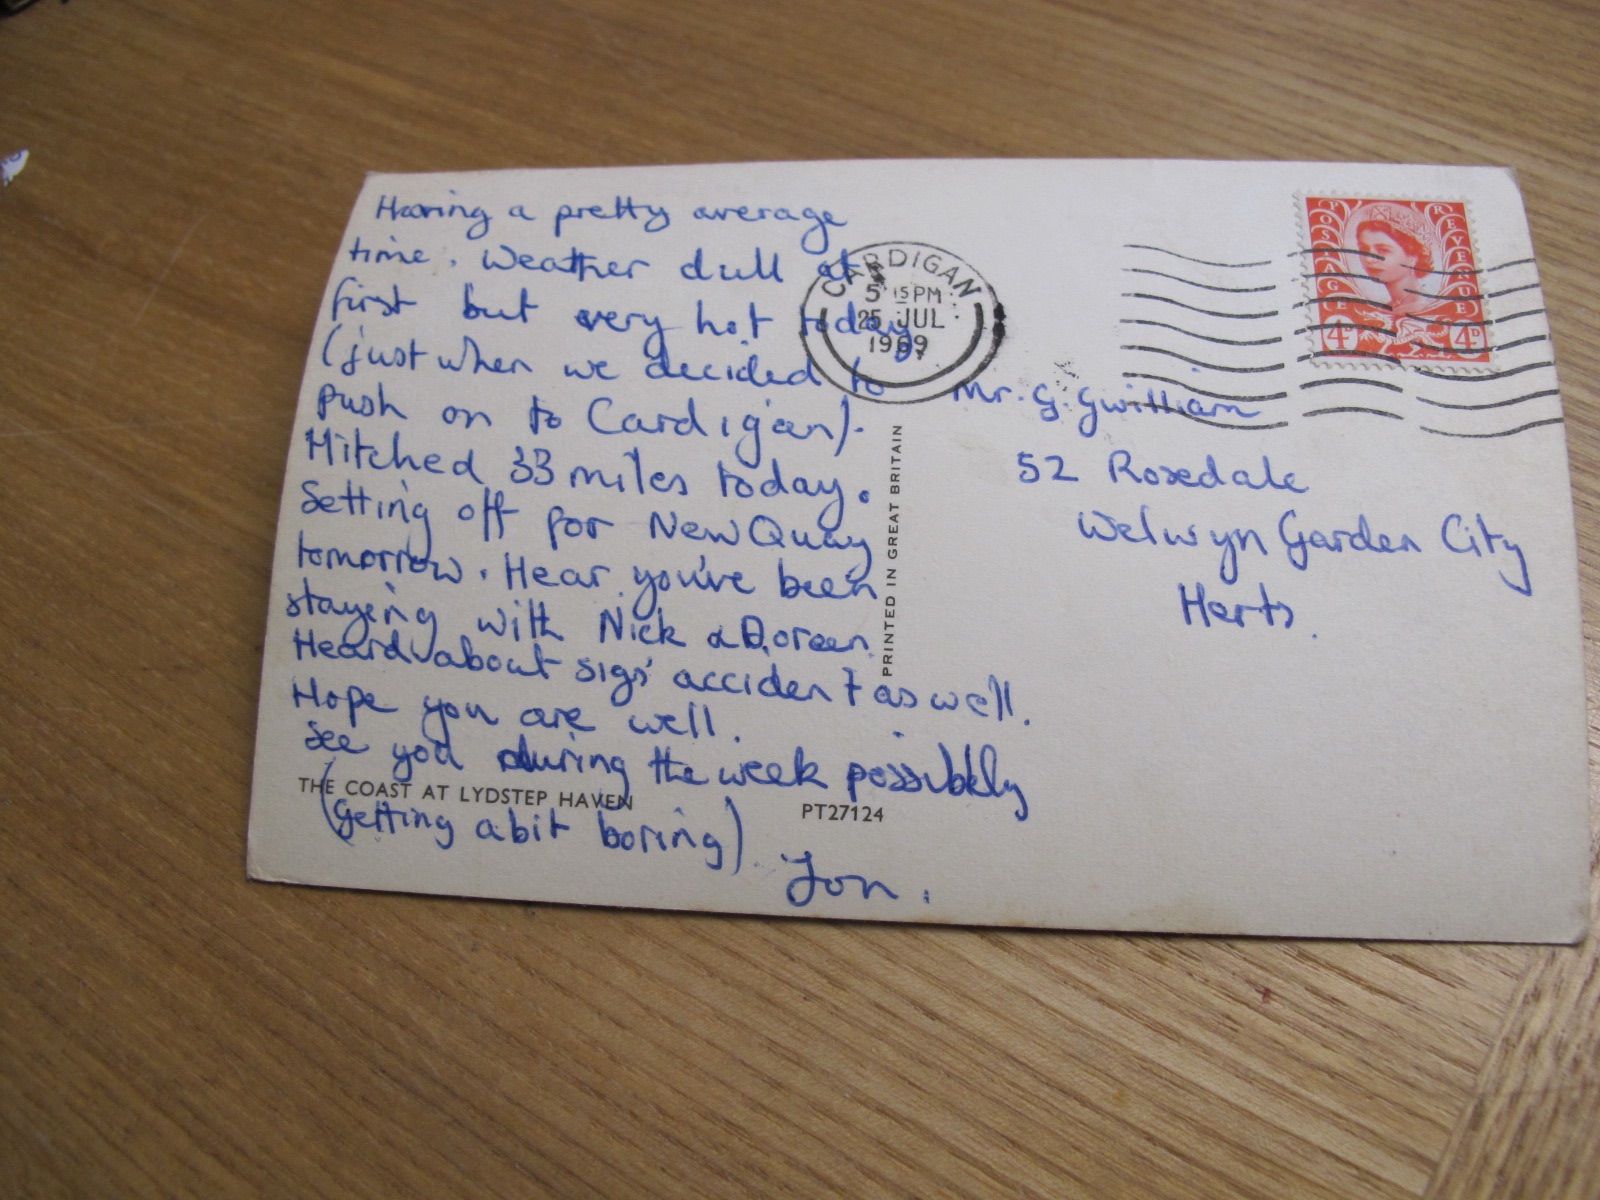 Having a pretty average
time. Weather dull at
first but very hot today
(just when we decided to
push on to Cardigan).
Hitched 33 miles today.
Setting off for New Quay
tomorrow. Hear you've been
staying with Nick & Doreen.
Heard about sigs' accident as well.
Hope you are well.
See you during the week possibly
(getting a bit boring)
Jon.
THE COAST AT LYDSTEP HAVEN
PT27124
PRINTED IN GREAT BRITAIN
CARDIGAN
5 15 PM
25 JUL
1969
POSTAGE REVENUE
4D 4D
Mr. G. Gwilliam
52 Rosedale
Welwyn Garden City
Herts.